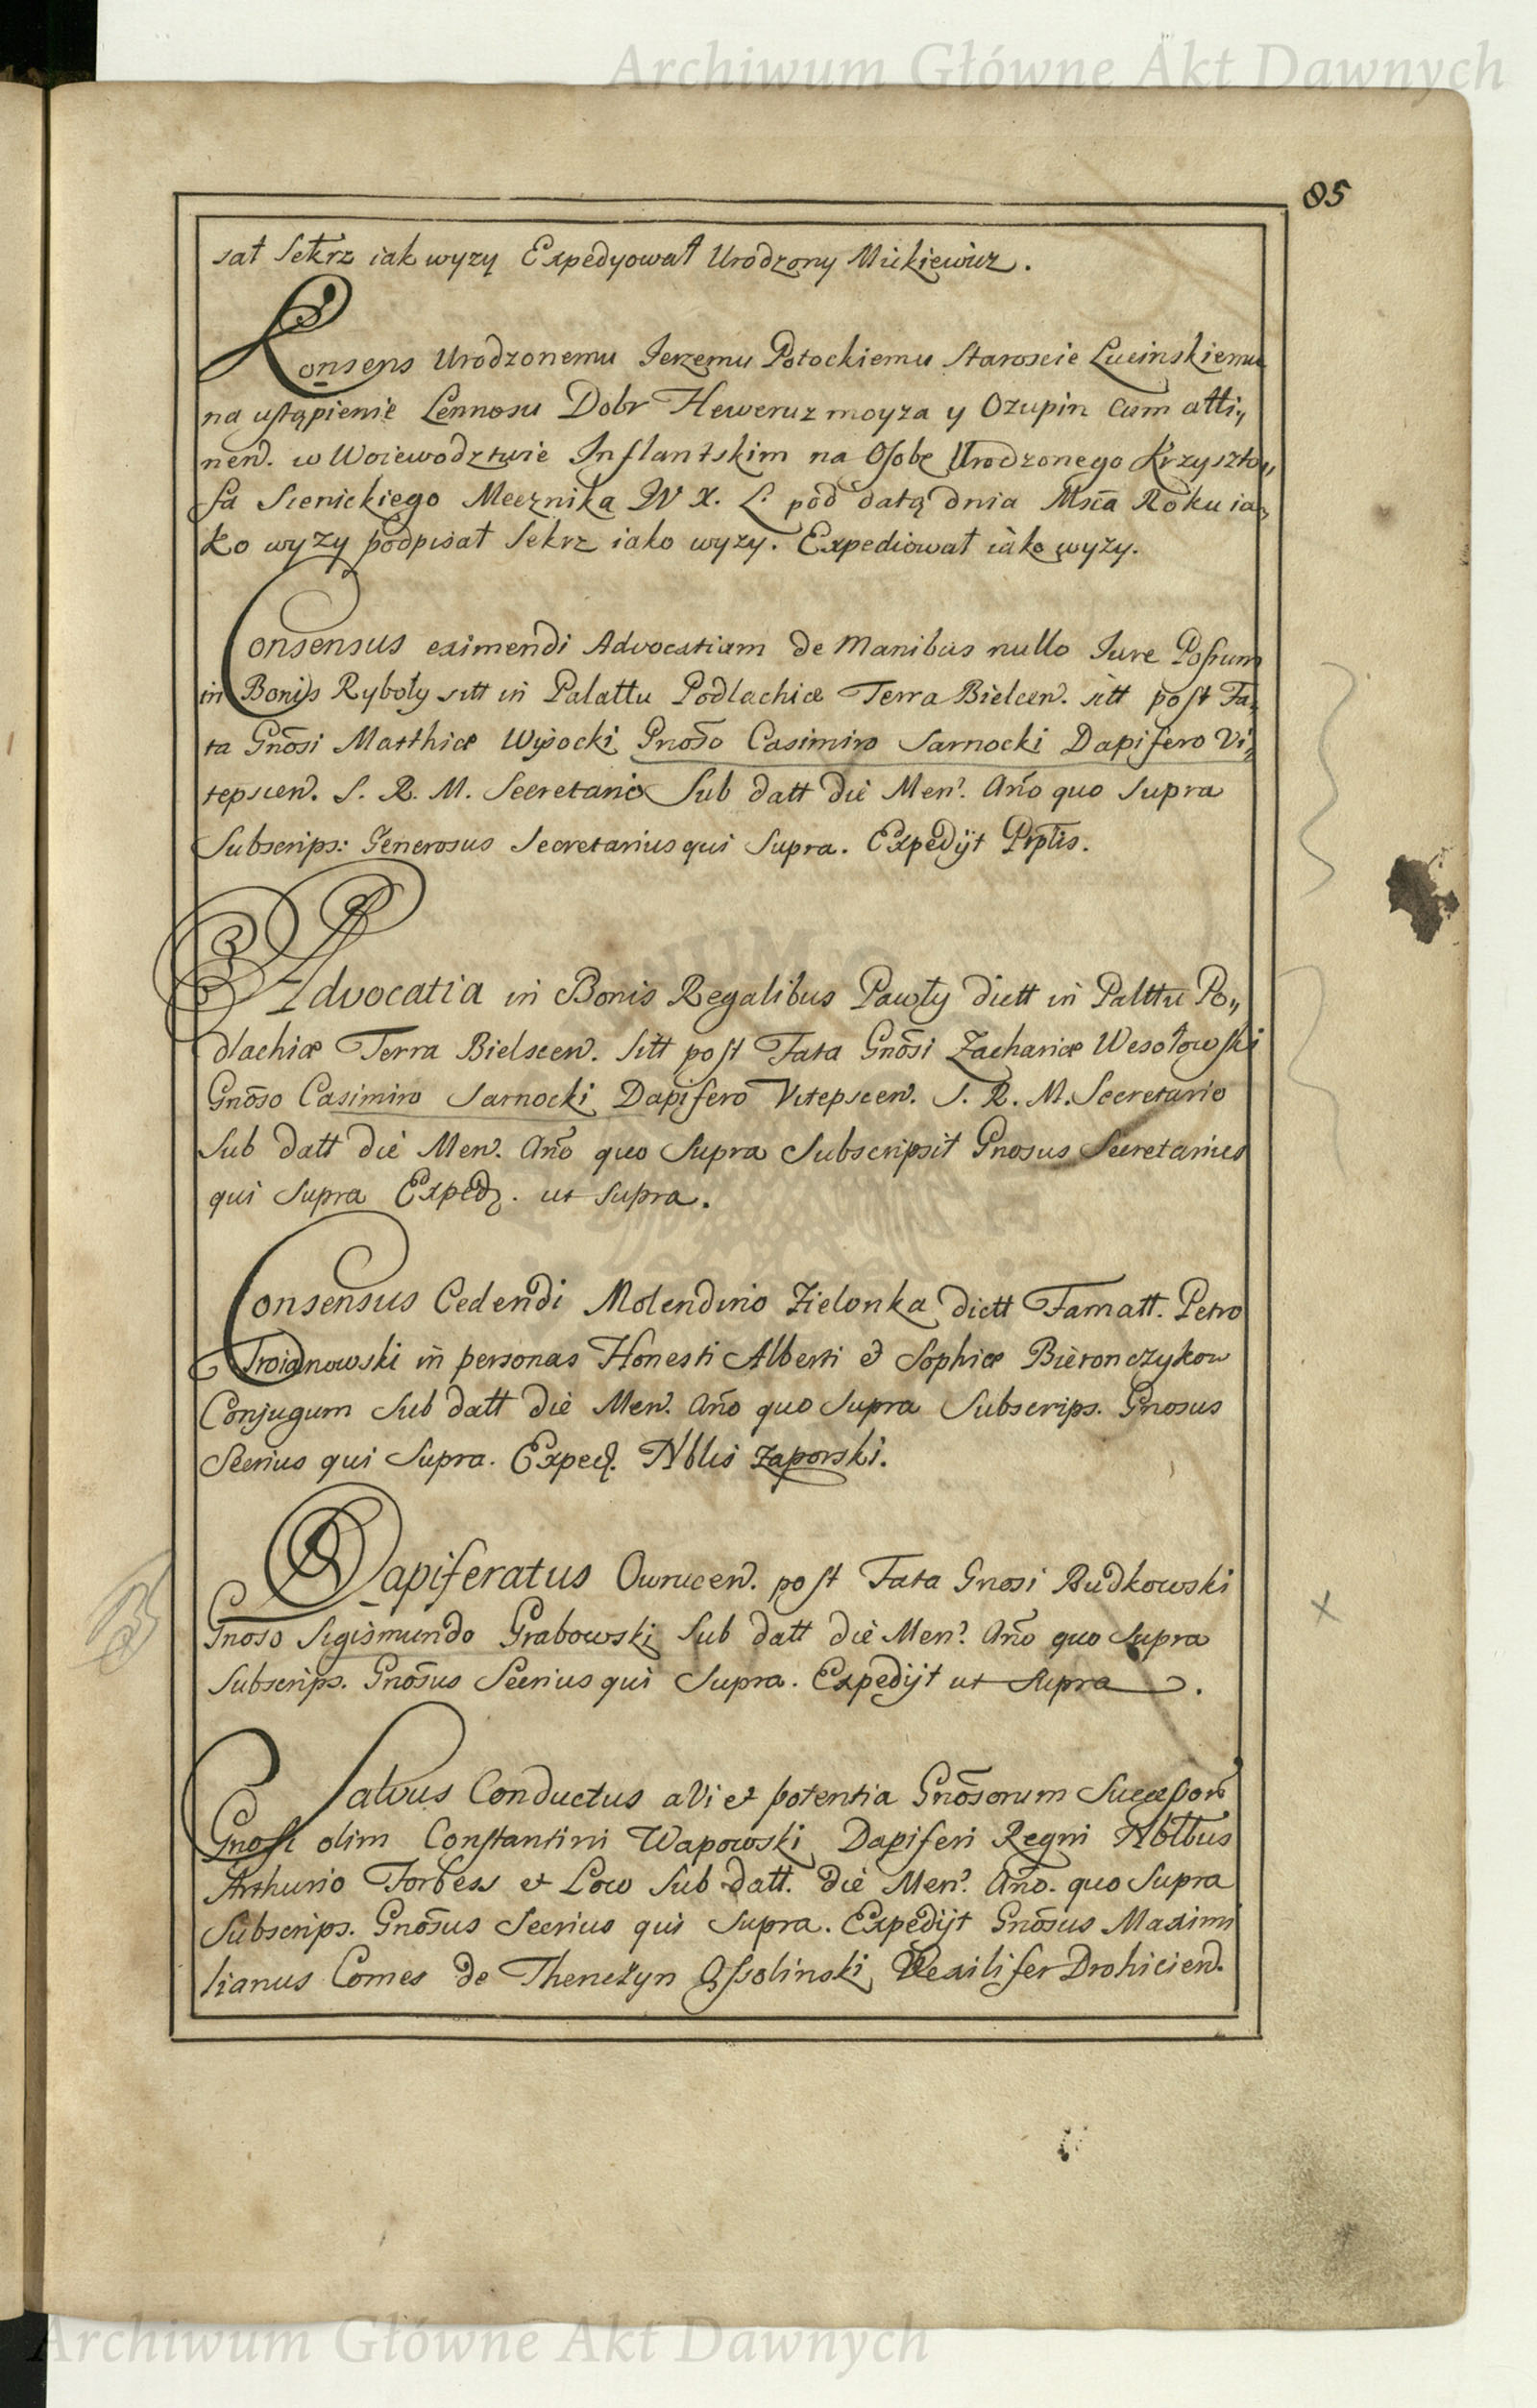 Archiwum Główne Akt Dawnych
85
sał Sekrz iak wyzy Expedyował Urodzony Mickiewicz.
Konsens Urodzonemu Jerzemu Potockiemu Staroscie Lucinskiemu
na ustąpienie Lennosu Dobr Heweruz moyza y Ozupin Cum atti„
nen. w Woiewodztwie Inflantskim na Osobę Urodzonego Krzyszto„
fa Sienickiego Miecznika W X. L. pod datą dnia Msca Roku ia„
ko wyzy podpisał Sekrz iako wyzy. Expediował iako wyzy.
Consensus eximendi Advocatiam de Manibus nullo Jure Possum
in Bonis Ryboły sitt in Palattu Podlachiæ Terra Bielcen. sitt post Fa„
ta Gnosi Matthiæ Wysocki Gnoso Casimiro Sarnocki Dapifero Vi„
tepscen. S. R. M. Secretario Sub datt die Men. Ano quo Supra
Subscrips: Generosus Secretarius qui Supra. Expedijt Prptis.
Advocatia in Bonis Regalibus Pawły dictt in Palttu Po„
dlachiæ Terra Bielscen. sitt post Fata Gnosi Zachariæ Wesołowski
Gnoso Casimiro Sarnocki Dapifero Vitepscen. S. R. M. Secretario
Sub datt die Men. Ano quo Supra Subscripsit Gnosus Secretarius
qui Supra Exped. ut Supra.
Consensus Cedendi Molendino Zielonka dictt Famatt. Petro
Troianowski in personas Honesti Alberti & Sophiæ Bieronczykow
Conjugum Sub datt die Men. Ano quo Supra Subscrips. Gnosus
Secrius qui Supra. Exped. Nblis Zaporski.
Dapiferatus Owrucen. post Fata Gnosi Rudkowski
Gnoso Sigismundo Grabowski Sub datt die Men. Ano quo Supra
Subscrips. Gnosus Secrius qui Supra. Expedijt ut Supra.
Salvus Conductus a Vi et potentia Gnosorum Successor
Gnosi olim Constantini Wapowski Dapiferi Regni Nbllbus
Arthurio Forbess et Low Sub datt. die Men. Ano. quo Supra
Subscrips. Gnosus Secrius qui Supra. Expedijt Gnosus Maximi
lianus Comes de Thenczyn Ossolinski Vexilifer Drohicien.
Archiwum Główne Akt Dawnych